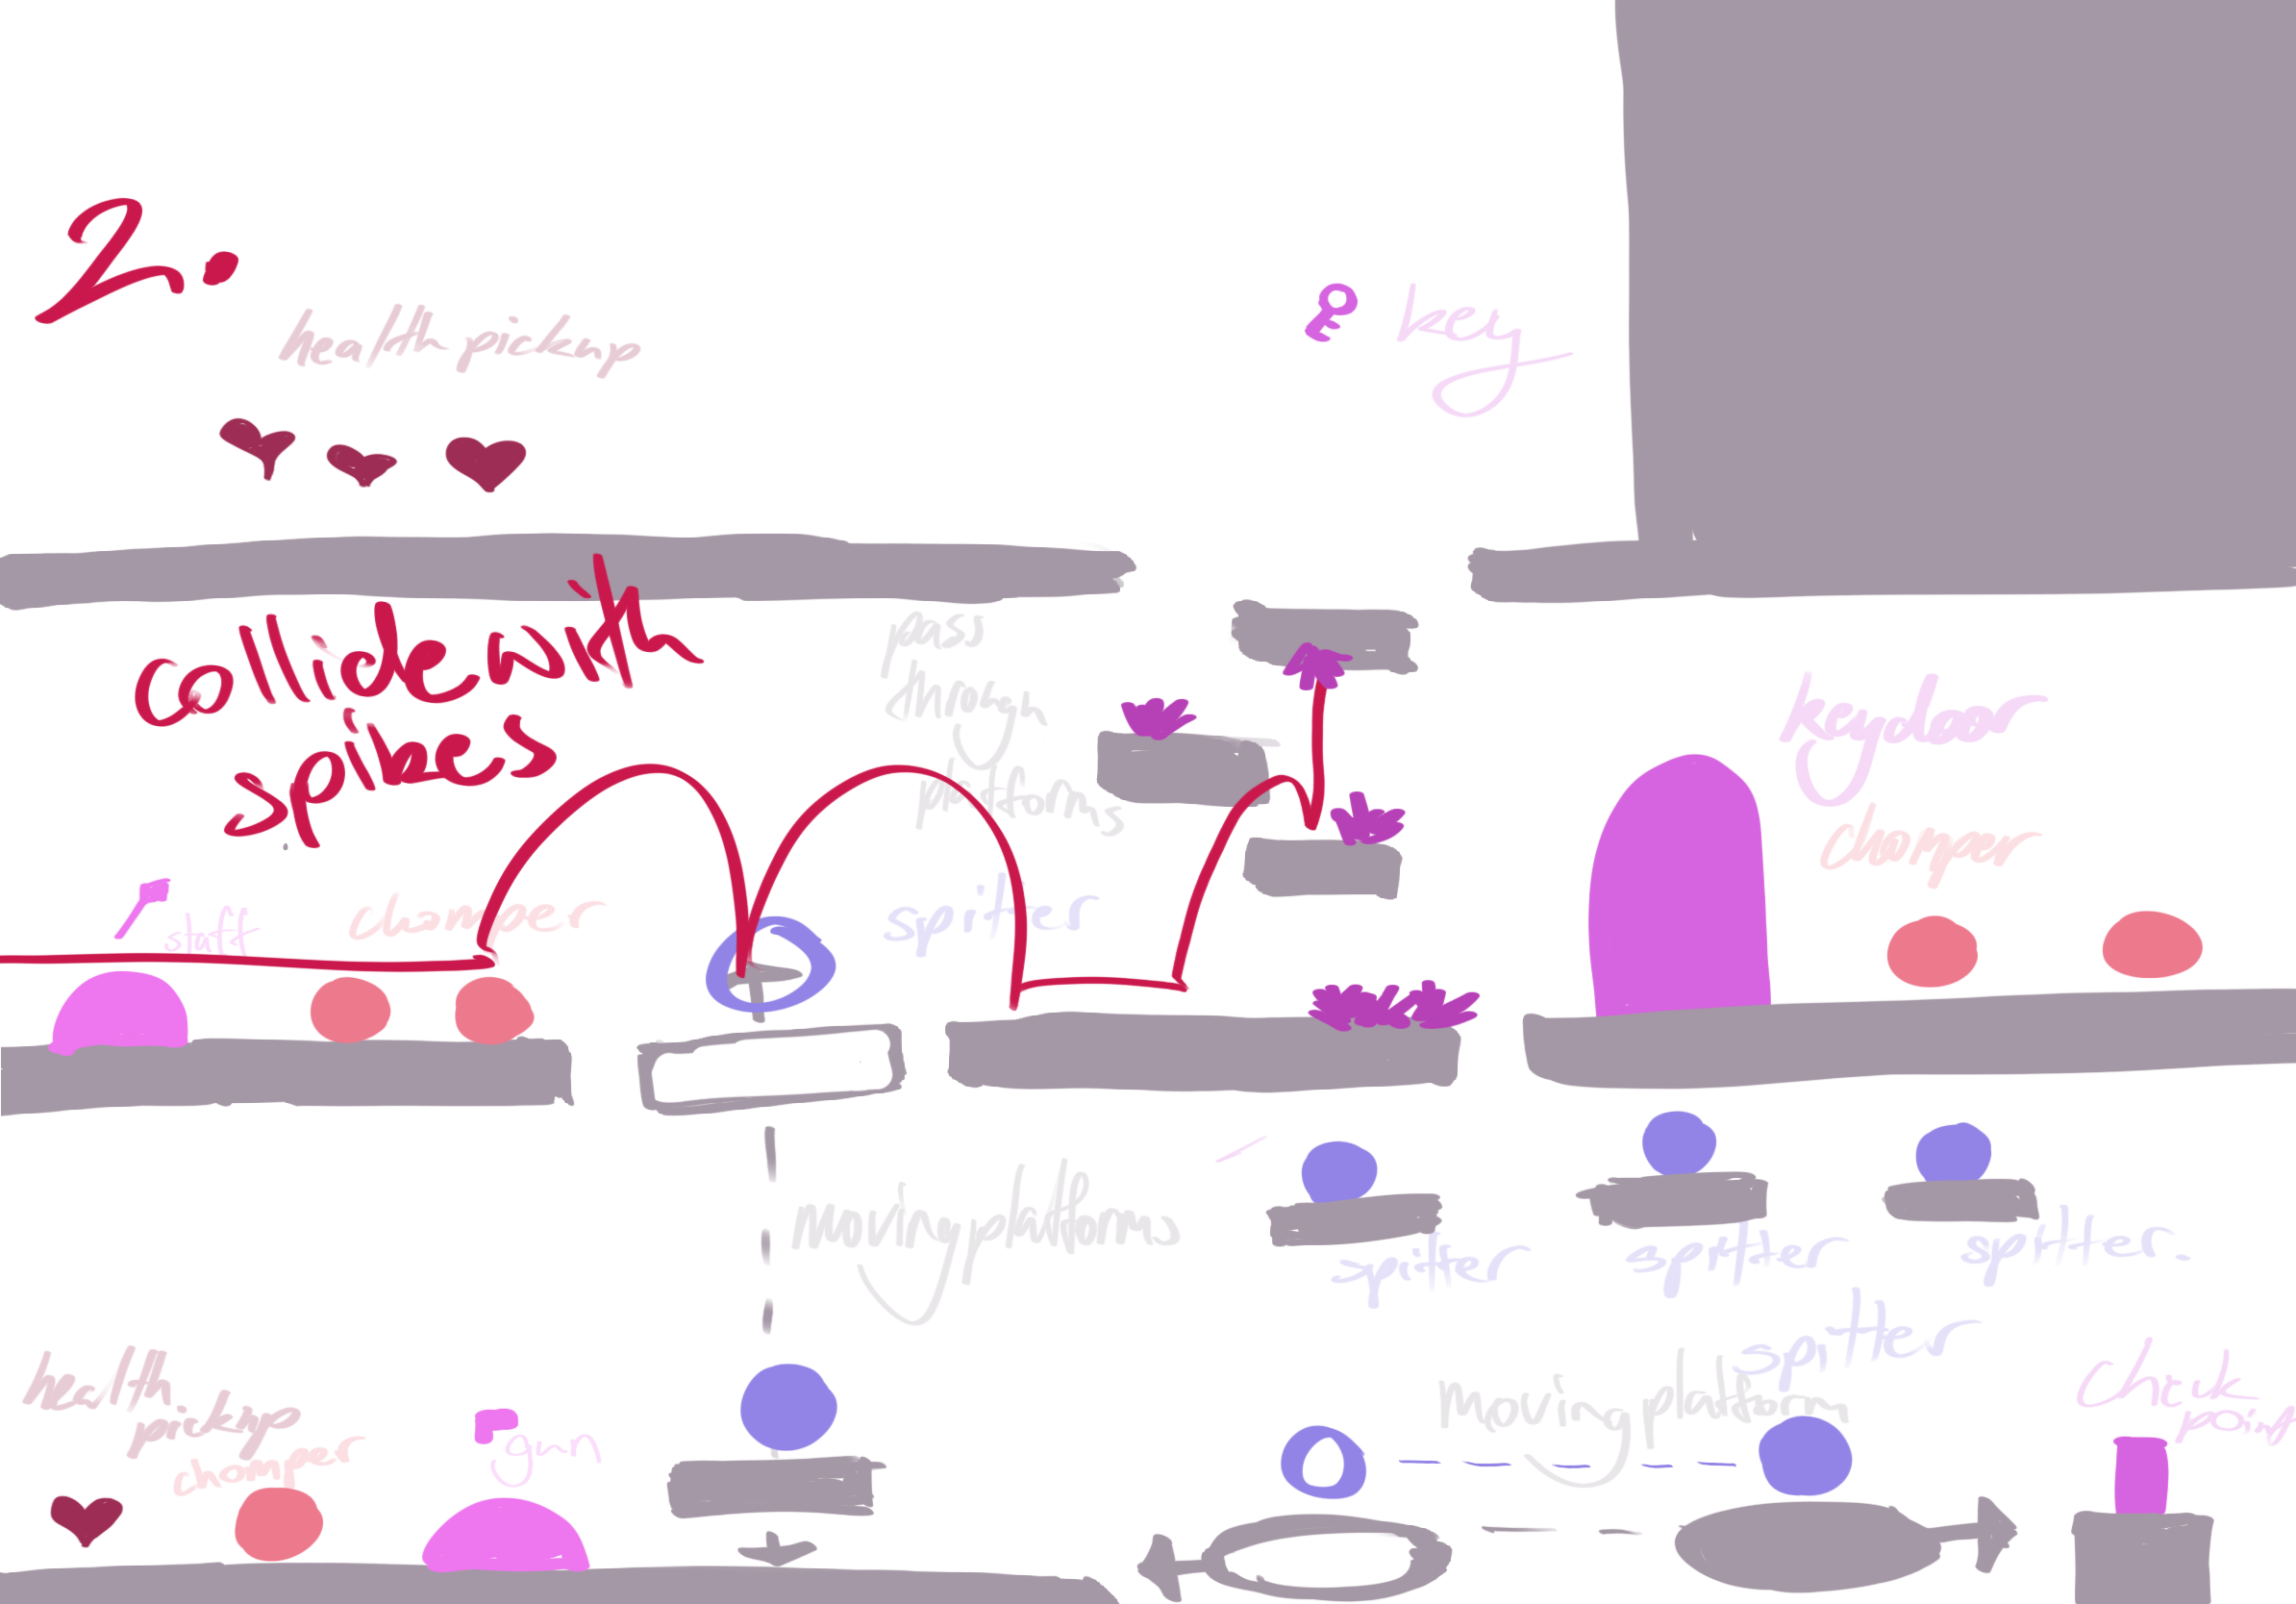 2.
health pickup
key
collide with
spikes
pass
through
platforms
key door
chomper
staff
chomper
spitter
moving platforms
spitter
spitter
spitter.
spitter
moving platform
health
pickup
chomper
gun
check
point